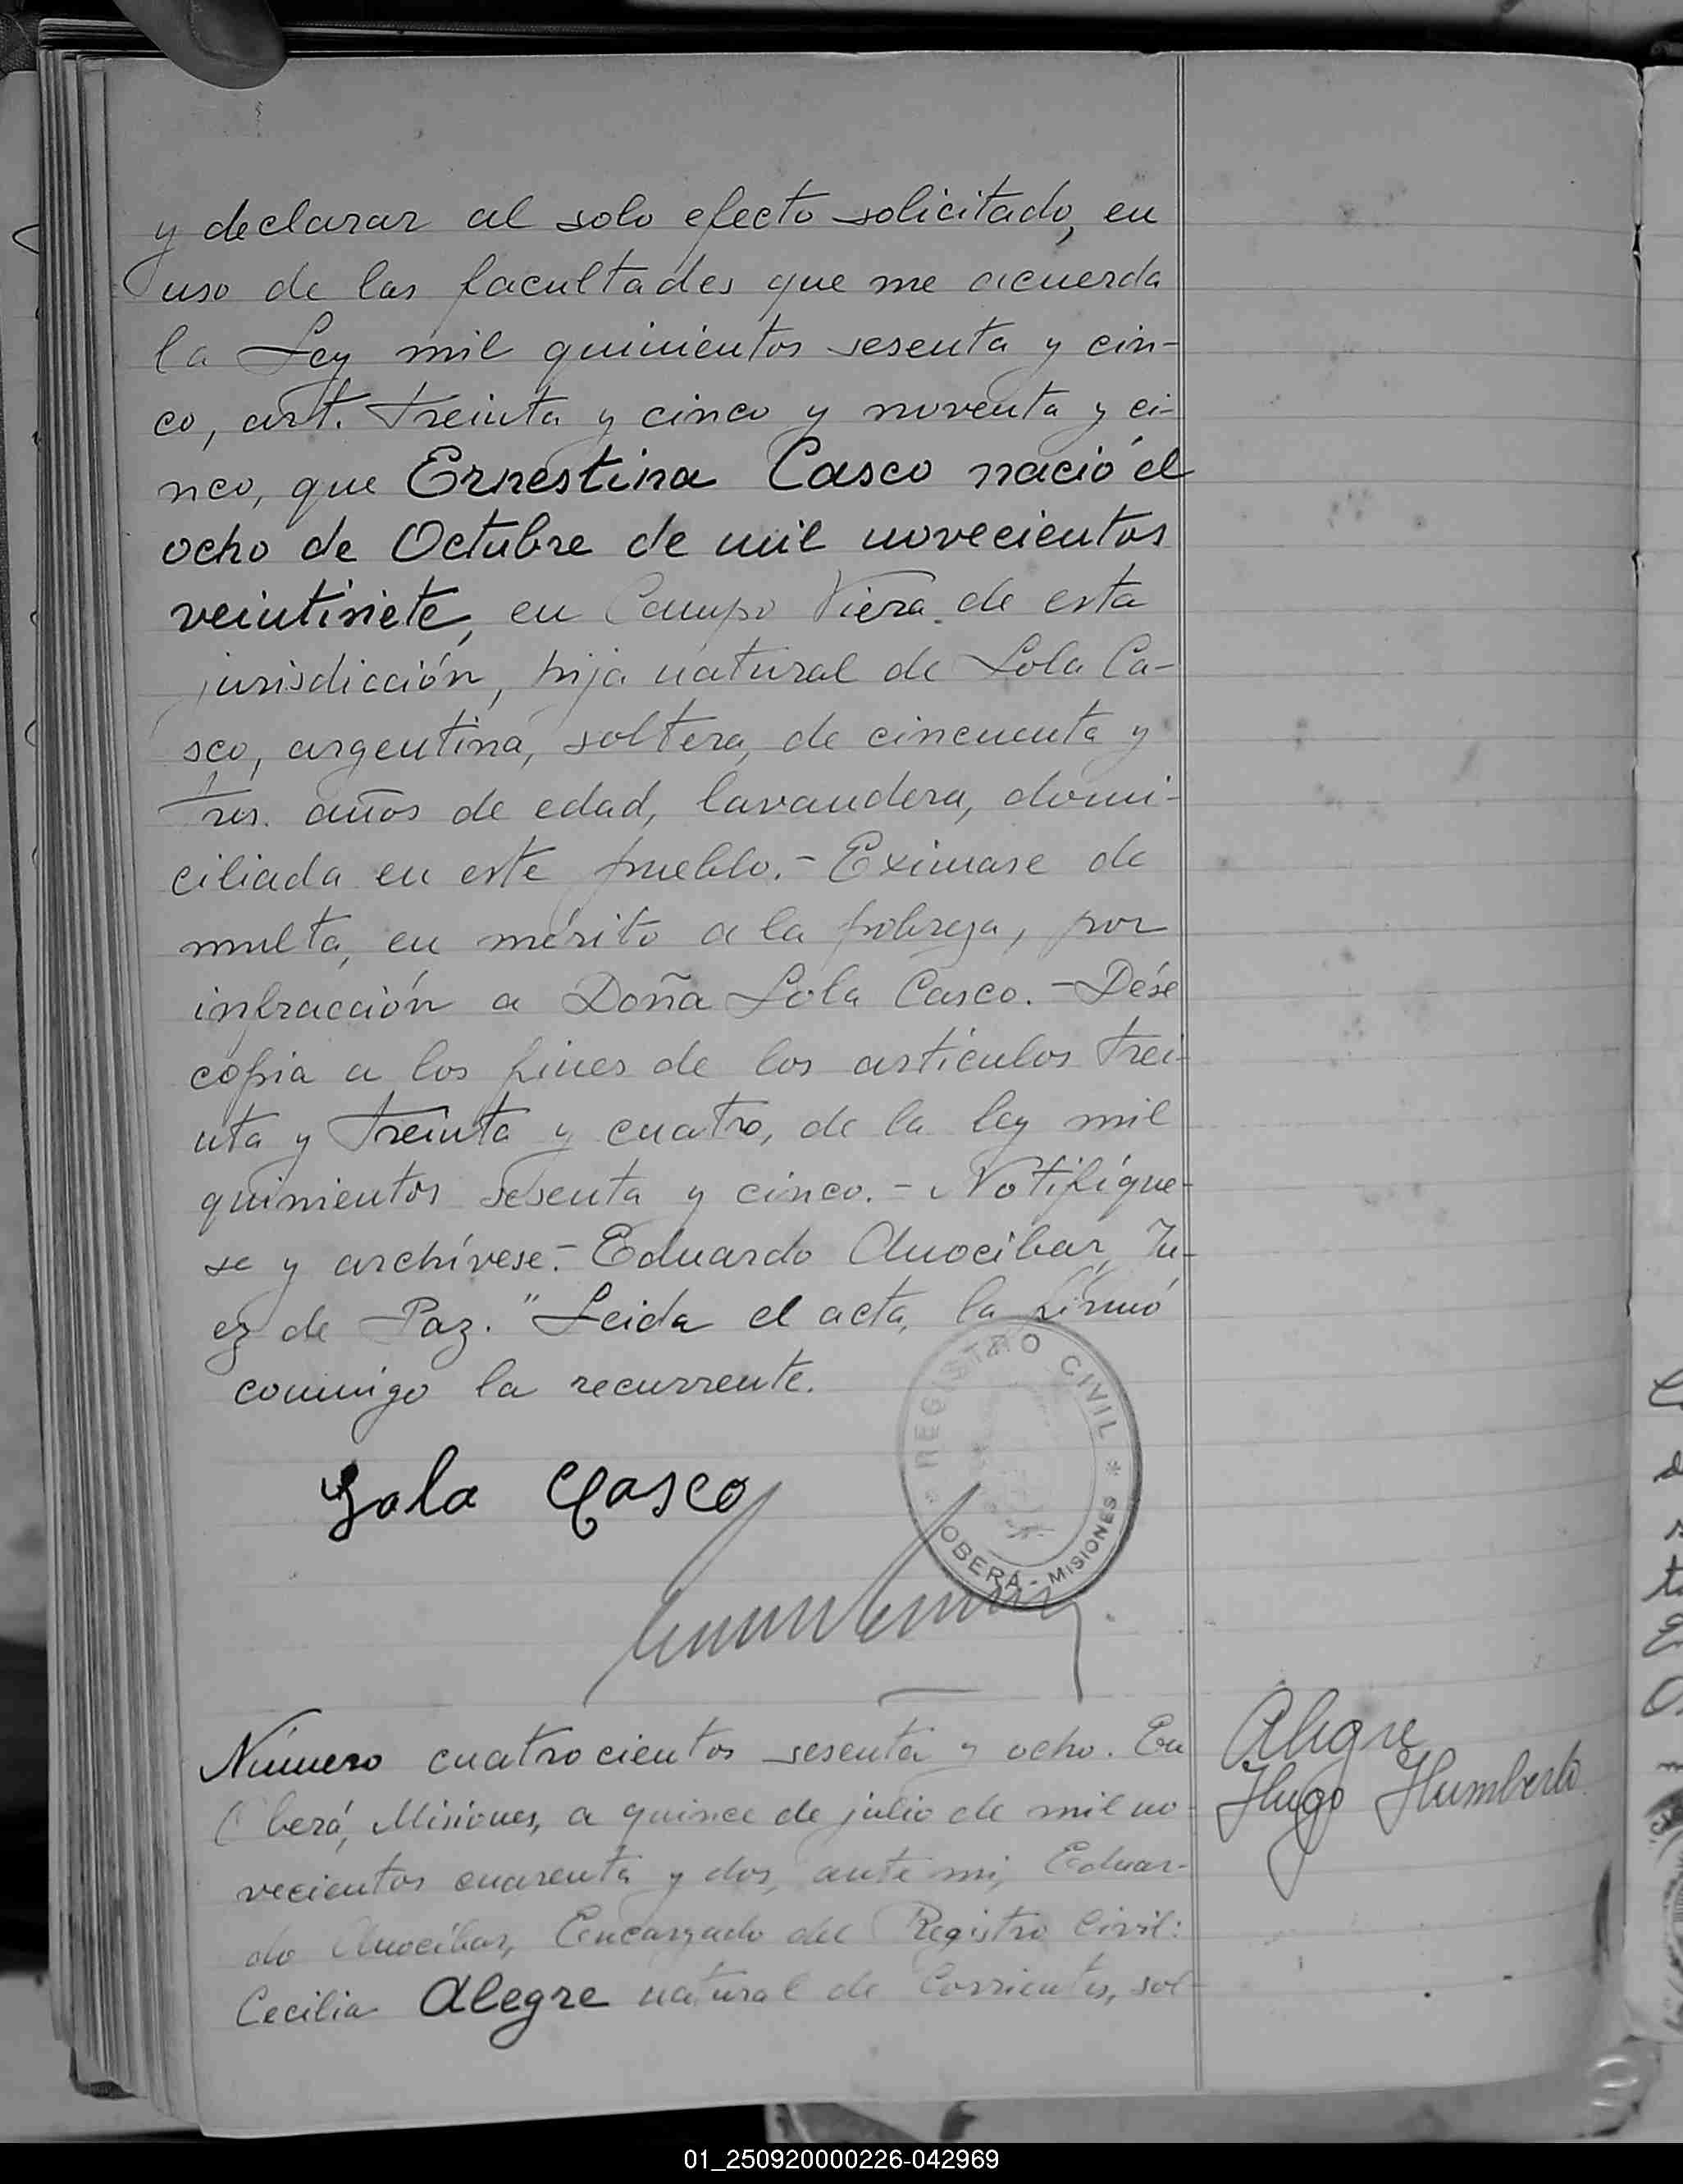 y declarar al solo efecto solicitado, en
uso de las facultades que me acuerda
la Ley mil quinientos sesenta y cin-
co, art. treinta y cinco y noventa y ci-
nco, que Ernestina Casco nació el
ocho de Octubre de mil novecientos
veintisiete, en Campo Viera de esta
jurisdicción, hija natural de Lola Ca-
sco, argentina, soltera, de cincuenta y
tres años de edad, lavandera, domi-
ciliada en este pueblo.- Exímase de
multa, en mérito a la pobreza, por
infracción a Doña Lola Casco.- Dése
copia a los fines de los artículos trei-
nta y treinta y cuatro, de la ley mil
quinientos sesenta y cinco.- Notifíque-
se y archívese.- Eduardo Anocibar, Ju-
ez de Paz." Leida el acta, la firmó
conmigo la recurrente.
Lola Casco
REGISTRO CIVIL * OBERÁ - MISIONES
Número cuatrocientos sesenta y ocho. En
Oberá, Misiones, a quince de julio de mil no-
vecientos cuarenta y dos, ante mi, Eduar-
do Anocibar, Encargado del Registro Civil:
Cecilia Alegre natural de Corrientes, sol-
Alegre
Hugo Humberto
01_250920000226-042969